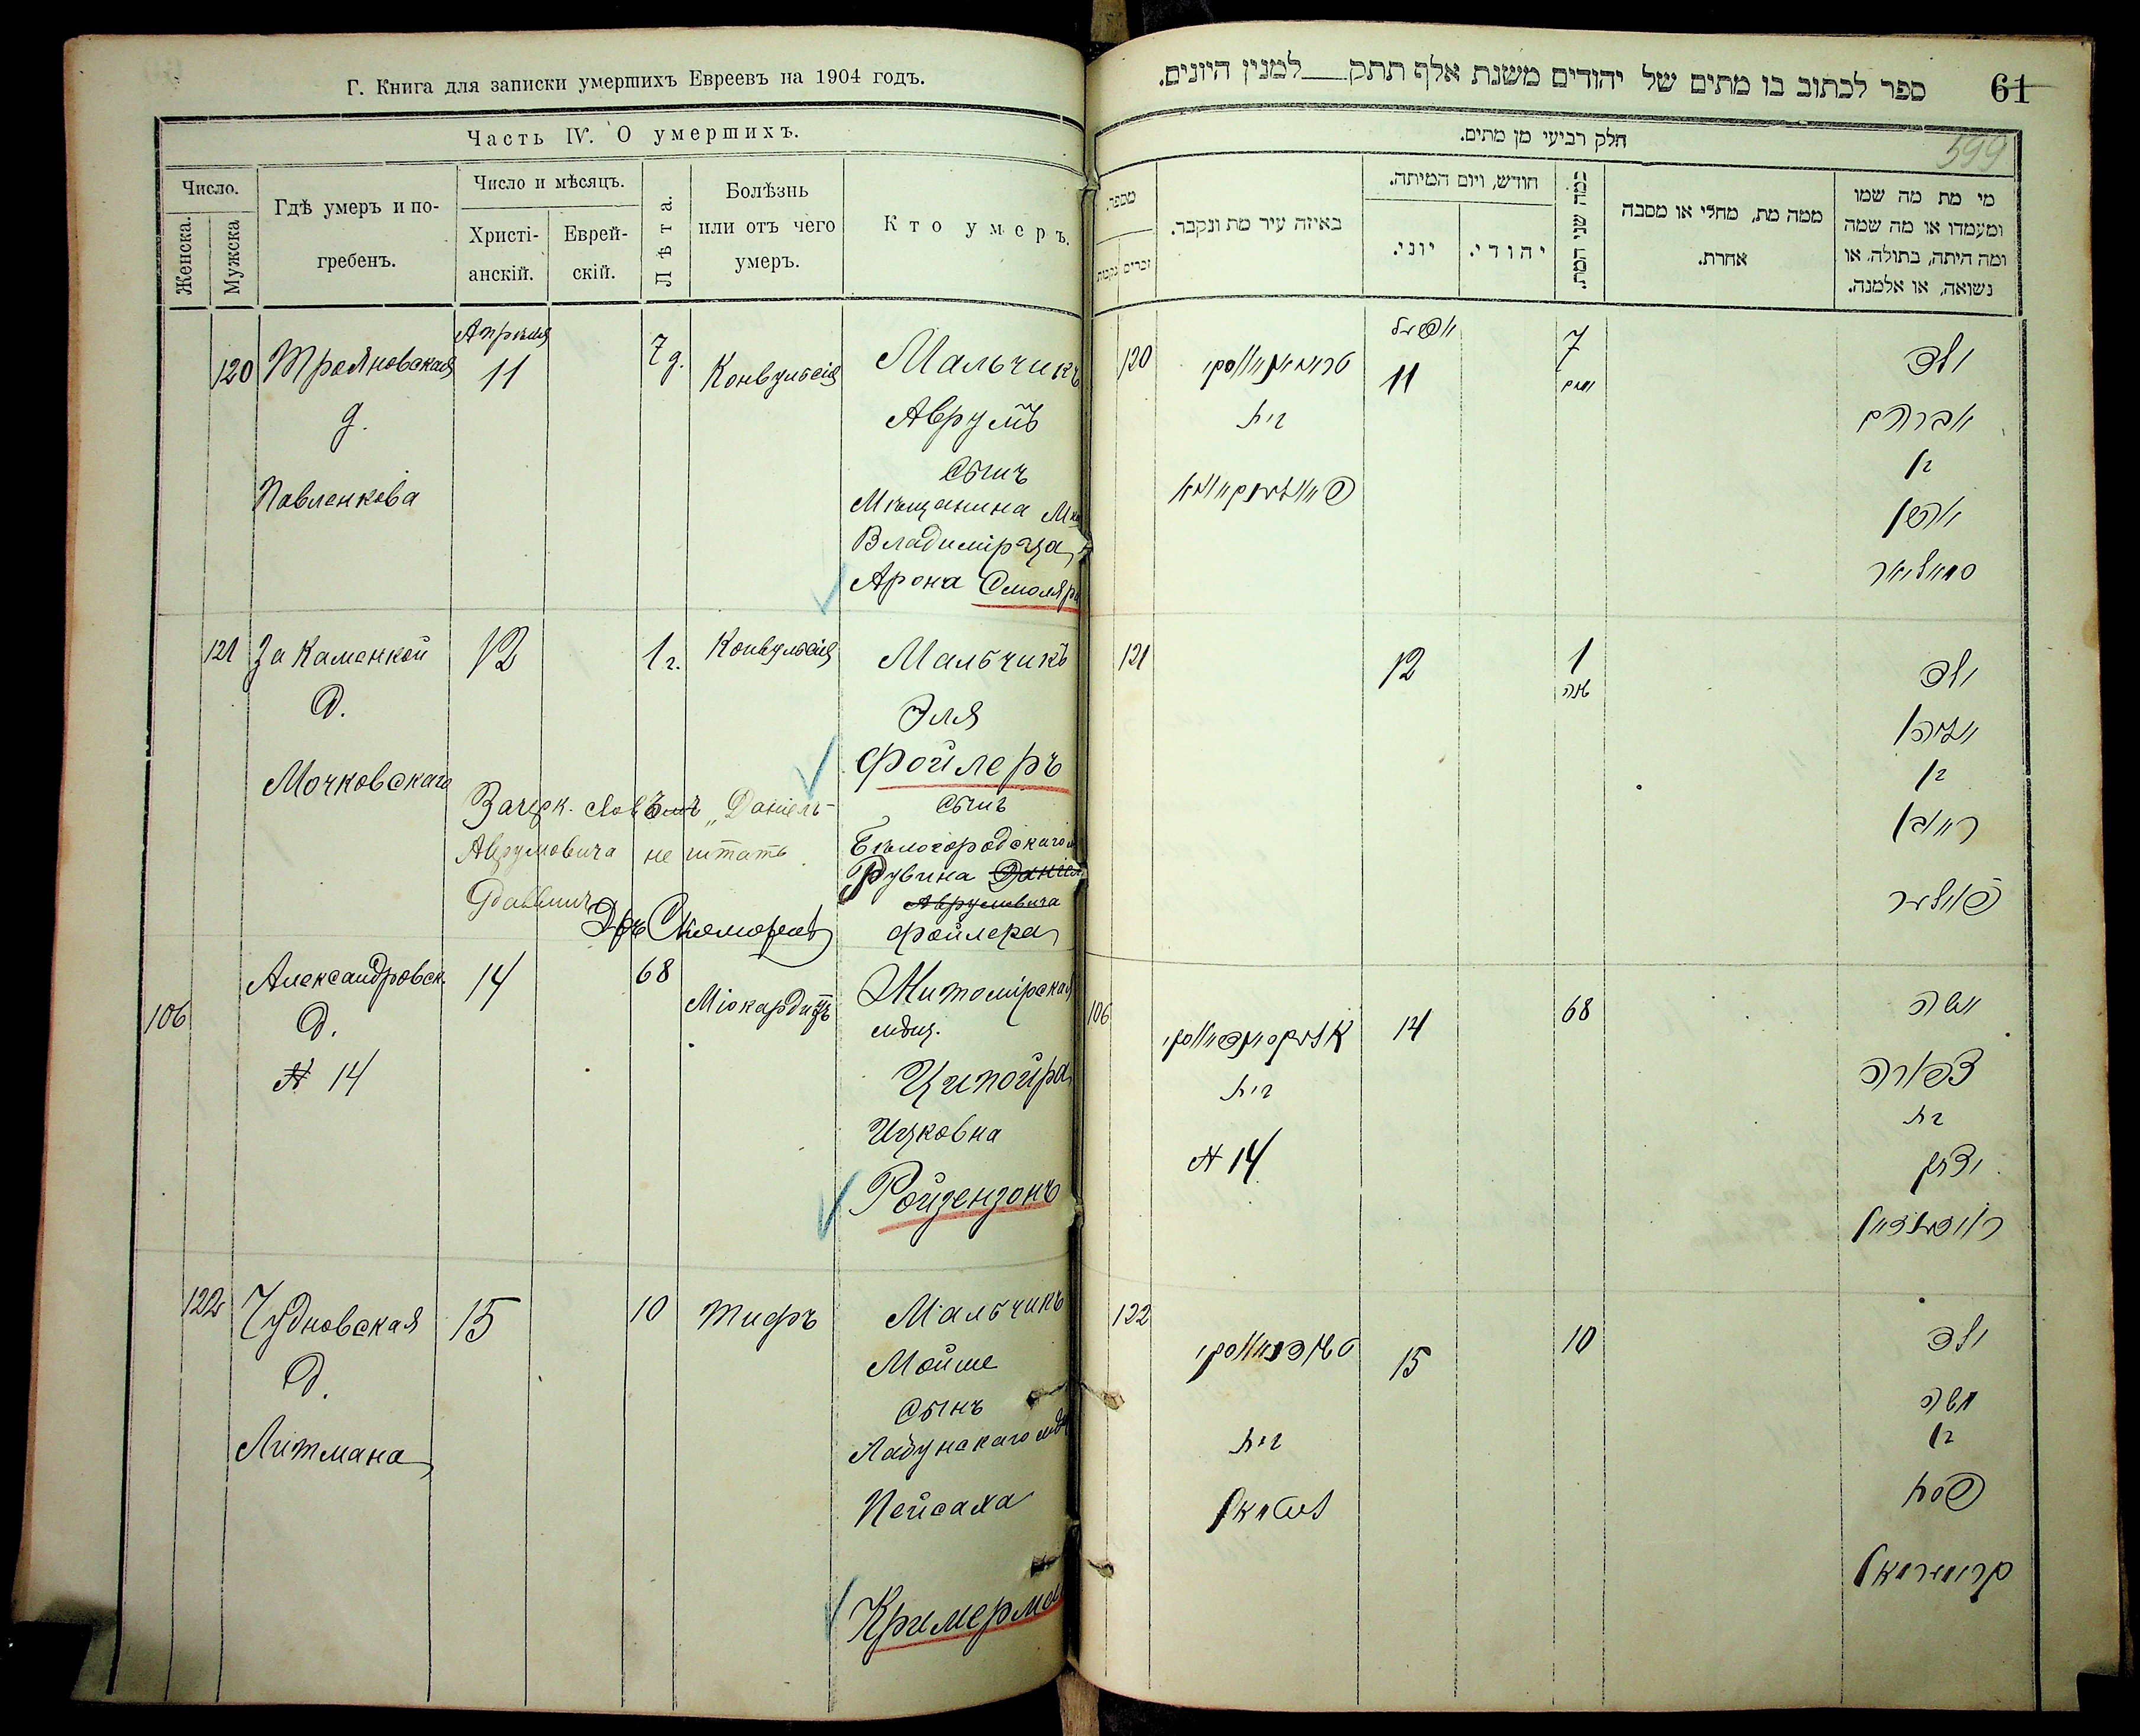 Г. Книга для записки умершихъ Евреевъ на 1904 годъ.
Часть IV. О умершихъ.
Число.
Женска.
Мужска
Гдѣ умеръ и по-
гребенъ.
Число и мѣсяцъ.
Христі-
анскій.
Еврей-
скій.
Лѣта.
Болѣзнь
или отъ чего
умеръ.
Кто умеръ.
120
Трояновская
д.
Павленкова
Апрѣля
11
7 д.
Конвульсія
Мальчикъ
Аврумъ
сынъ
Мѣщанина
Владимірца
Арона Смоляра
121
За Каменкой
д.
Мочковскаго
12
1 г.
Конвульсія
Мальчикъ
Эля
Фойлеръ
сынъ
Бѣлогородскаго
Рувина Даніел
Аврумовича
Фойлера
Зачерк. „Даніель-
Аврумовича не читать
Раввинъ
106
Александровск.
д.
№ 14
14
68
Міокардитъ
Житомірская
мѣщ.
Ципойра
Ицковна
Ройзензонъ
122
Чудновская
д.
Литмана
15
10
Тифъ
Мальчикъ
Мойше
сынъ
Лабунскаго
Пейсаха
Кримерма
ספר לכתוב בו מתים של יהודים משנת אלף תתק למנין היונים.
61
599
חלק רביעי מן מתים.
מספר
זכרים
נקבות
באיזה עיר מת ונקבר.
חודש, ויום המיתה.
יוני.
יהודי.
כמה שני המת.
ממה מת, מחלי או מסבה
אחרת.
מי מת מה שמו
ומעמדו או מה שמה
ומה היתה, בתולה, או
נשואה, או אלמנה.
120
בית
אפריל
11
7
ילד
אברהם
בן
אהרן
סמאליאר
121
12
1
שנה
ילד
אליהו
בן
ראובן
פוילער
106
בית
№ 14
14
68
אשה
צפורה
בת
יצחק
רויזענזאן
122
בית
ליטמאן
15
10
ילד
משה
בן
פסח
קרימערמאן